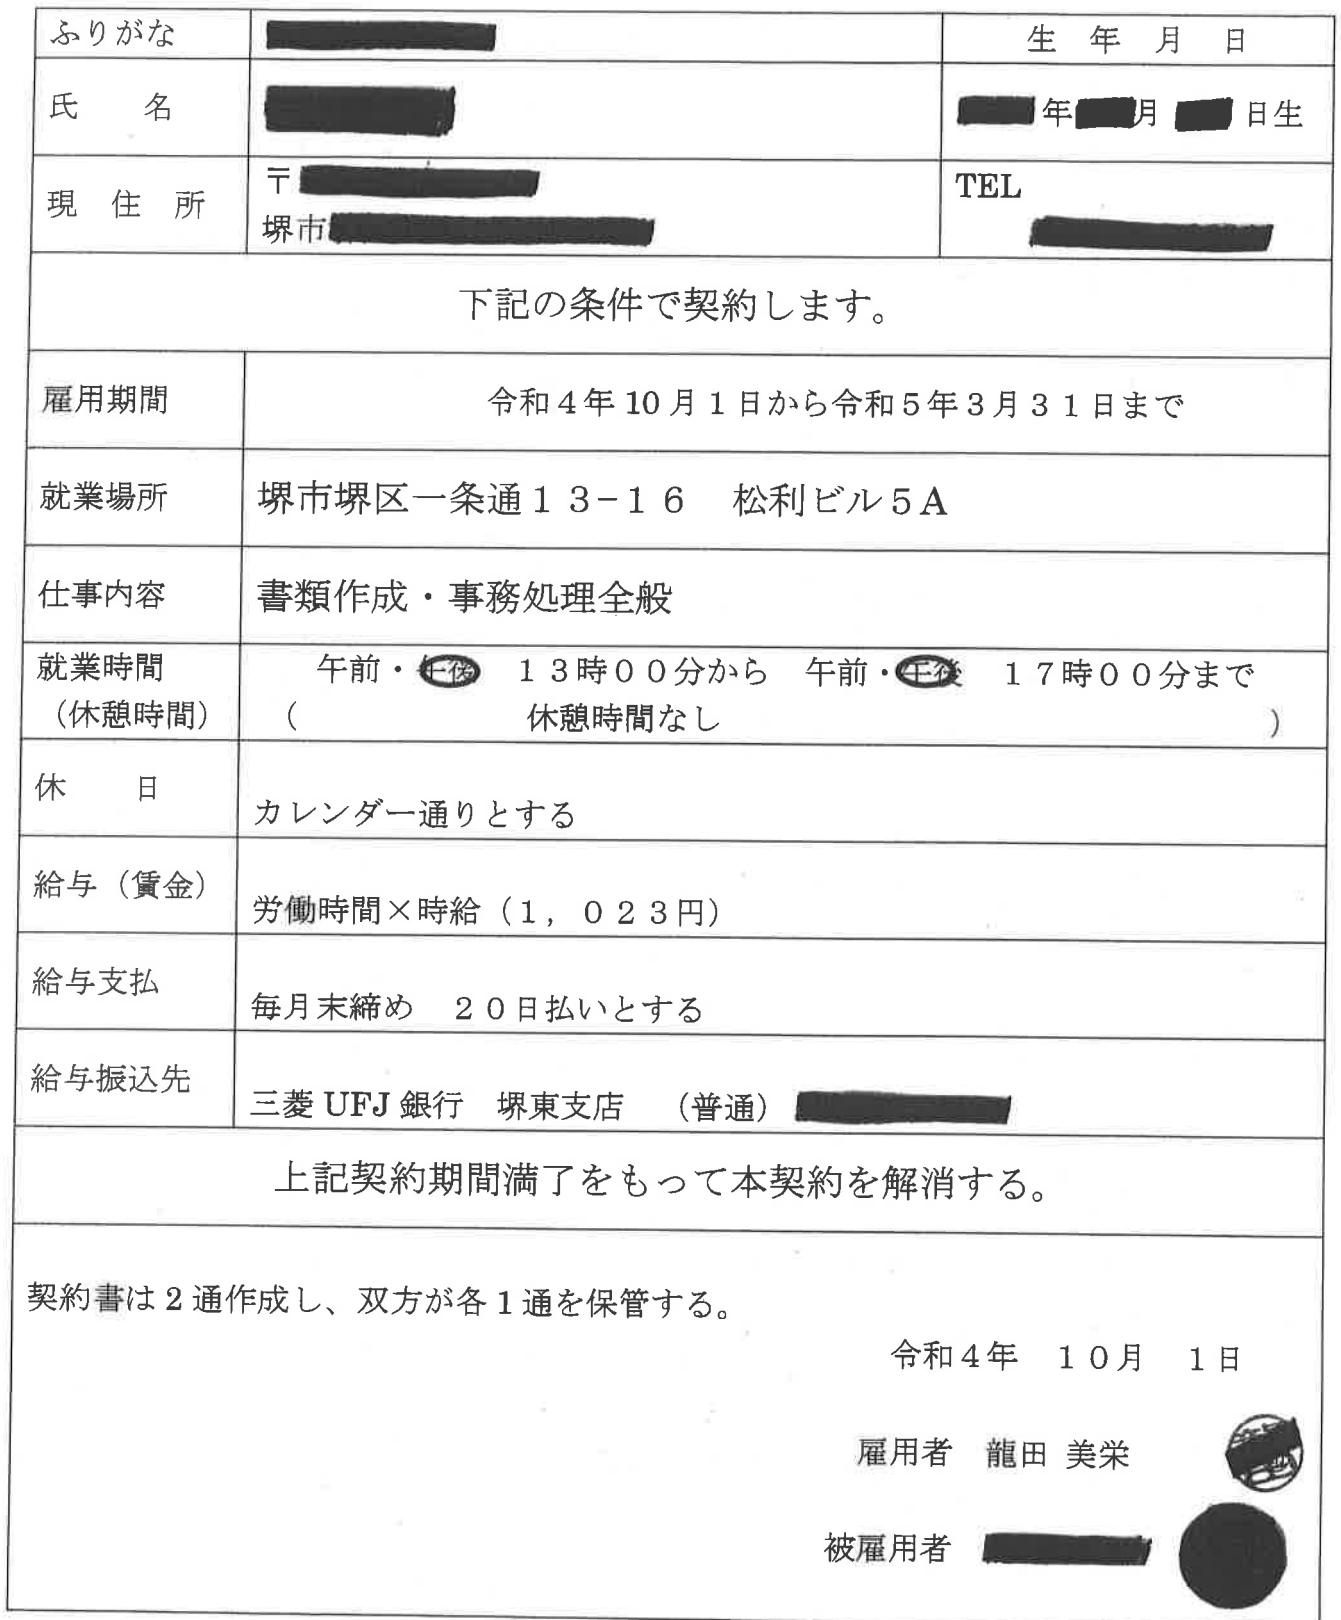 ふりがな
生 年 月 日
氏 名
年 月 日生
現 住 所
〒
堺市
TEL
下記の条件で契約します。
雇用期間
令和4年10月1日から令和5年3月31日まで
就業場所
堺市堺区一条通13-16 松利ビル5A
仕事内容
書類作成・事務処理全般
就業時間
(休憩時間)
午前・午後 13時00分から 午前・午後 17時00分まで
( 休憩時間なし )
休 日
カレンダー通りとする
給与(賃金)
労働時間×時給(1,023円)
給与支払
毎月末締め 20日払いとする
給与振込先
三菱UFJ銀行 堺東支店 (普通)
上記契約期間満了をもって本契約を解消する。
契約書は2通作成し、双方が各1通を保管する。
令和4年 10月 1日
雇用者 龍田 美栄
被雇用者